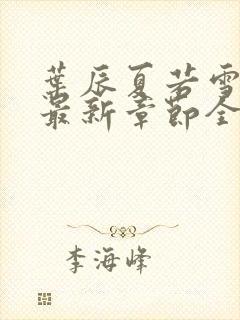 叶辰夏若雪
最新章节全
李海峰